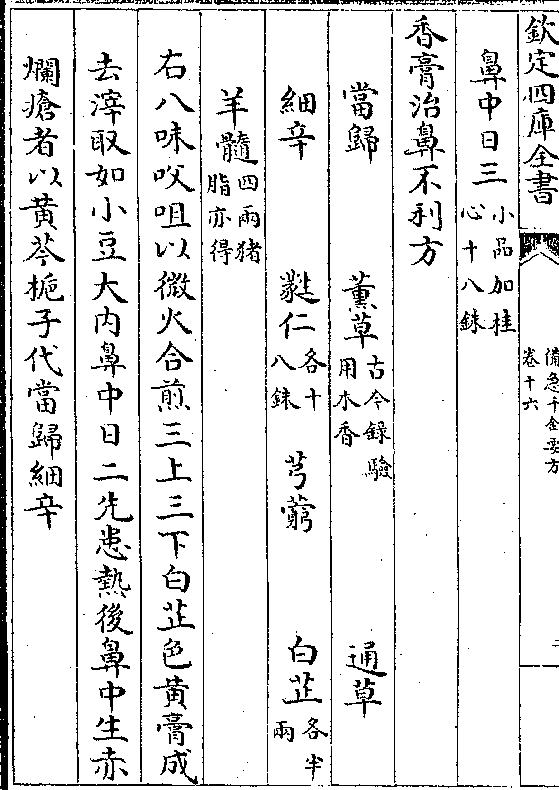 欽定四庫全書
備急千金要方
卷十六
鼻中日三小品加桂心十八銖
香膏治鼻不利方
當歸 薰草古今錄驗用木香 通草
細辛 蕤仁各十八銖 芎藭 白芷各半兩
羊髓四兩猪脂亦得
右八味㕮咀以微火合煎三上三下白芷色黄膏成
去滓取如小豆大内鼻中日二先患熱後鼻中生赤
爛瘡者以黄芩梔子代當歸細辛